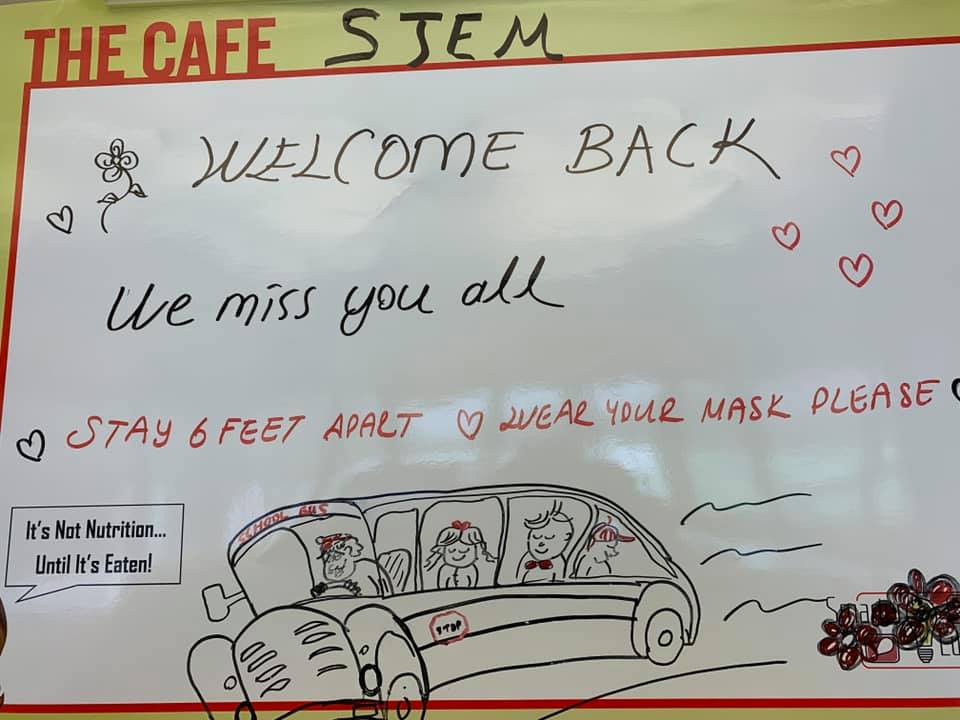 THE CAFE SJEM
WELCOME BACK
We miss you all
STAY 6 FEET APART WEAR YOUR MASK PLEASE
It's Not Nutrition...
Until It's Eaten!
SCHOOL BUS
STOP